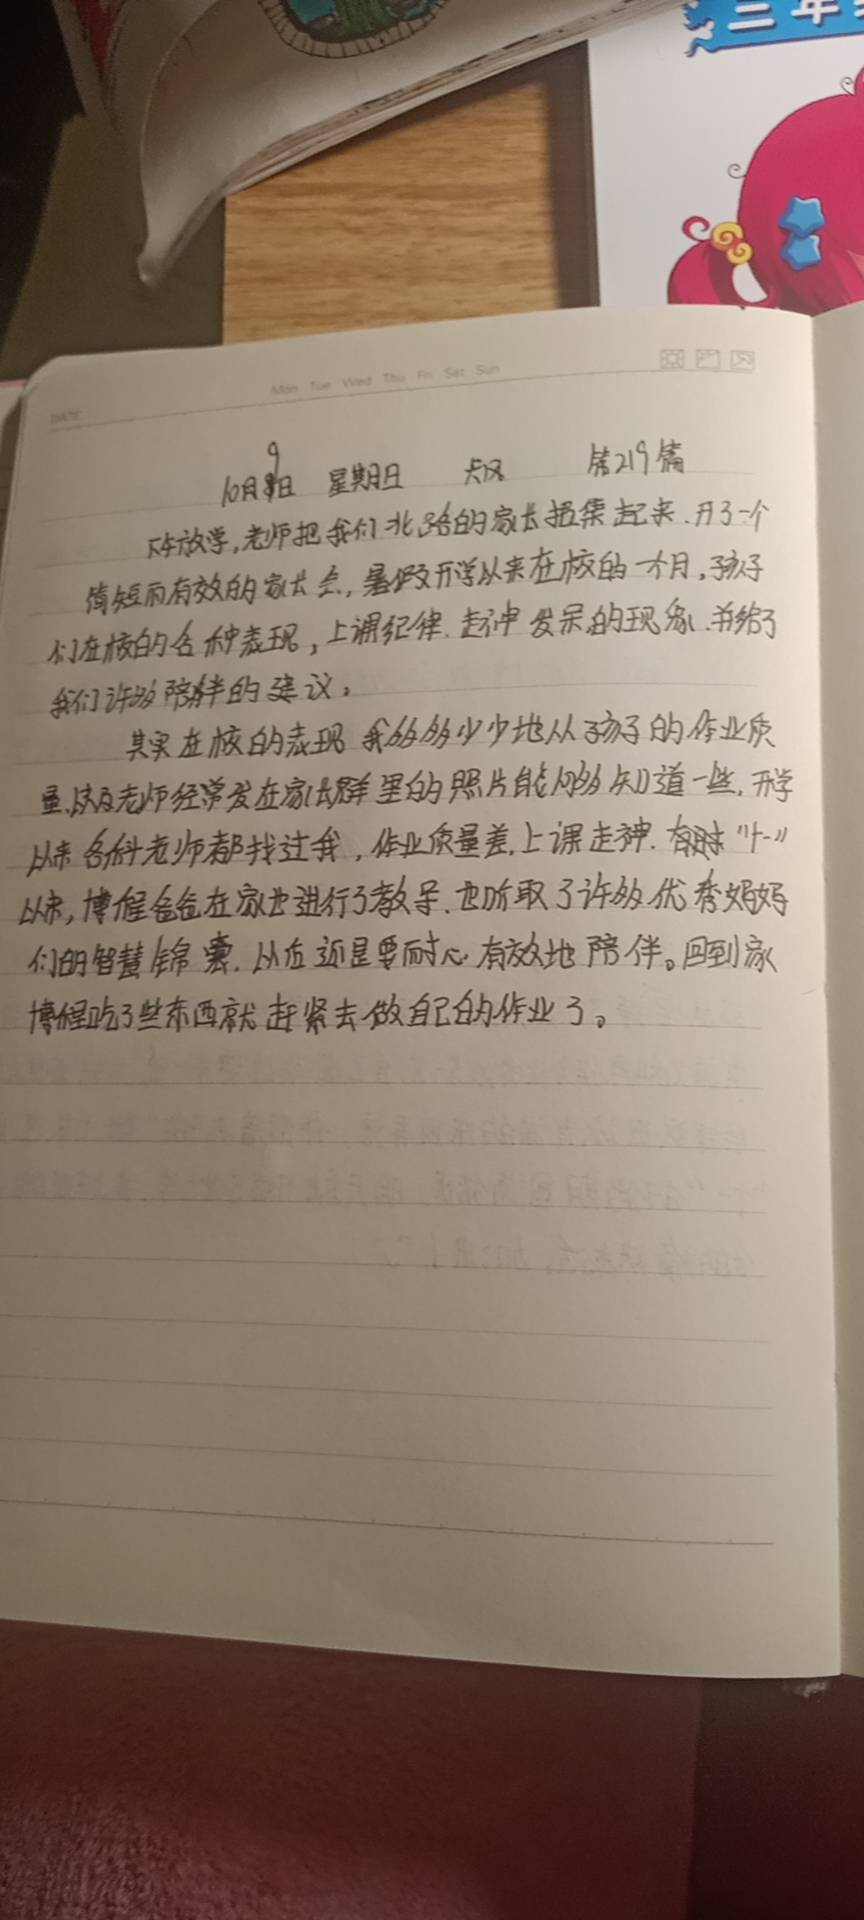 三年
DATE
Mon Tue Wed Thu Fri Sat Sun
10月9日 星期日 大风 第219篇
下午放学,老师把我们北路的家长招集起来.开了一个
简短而有效的家长会,暑假开学以来在校的一个月,孩子
们在校的各种表现,上课纪律.走神发呆的现象.并给了
我们许多陪伴的建议。
其实在校的表现 我多多少少地从孩子的作业质
量.以及老师经常发在家长群里的照片能够知道一些,开学
以来各科老师都找过我,作业质量差,上课走神.有时"十一"
以来,博程爸爸在家也进行了教导.也听取了许多优秀妈妈
们的智慧锦囊.以后还是要耐心有效地陪伴。回到家
博程吃了些东西就赶紧去做自己的作业了。